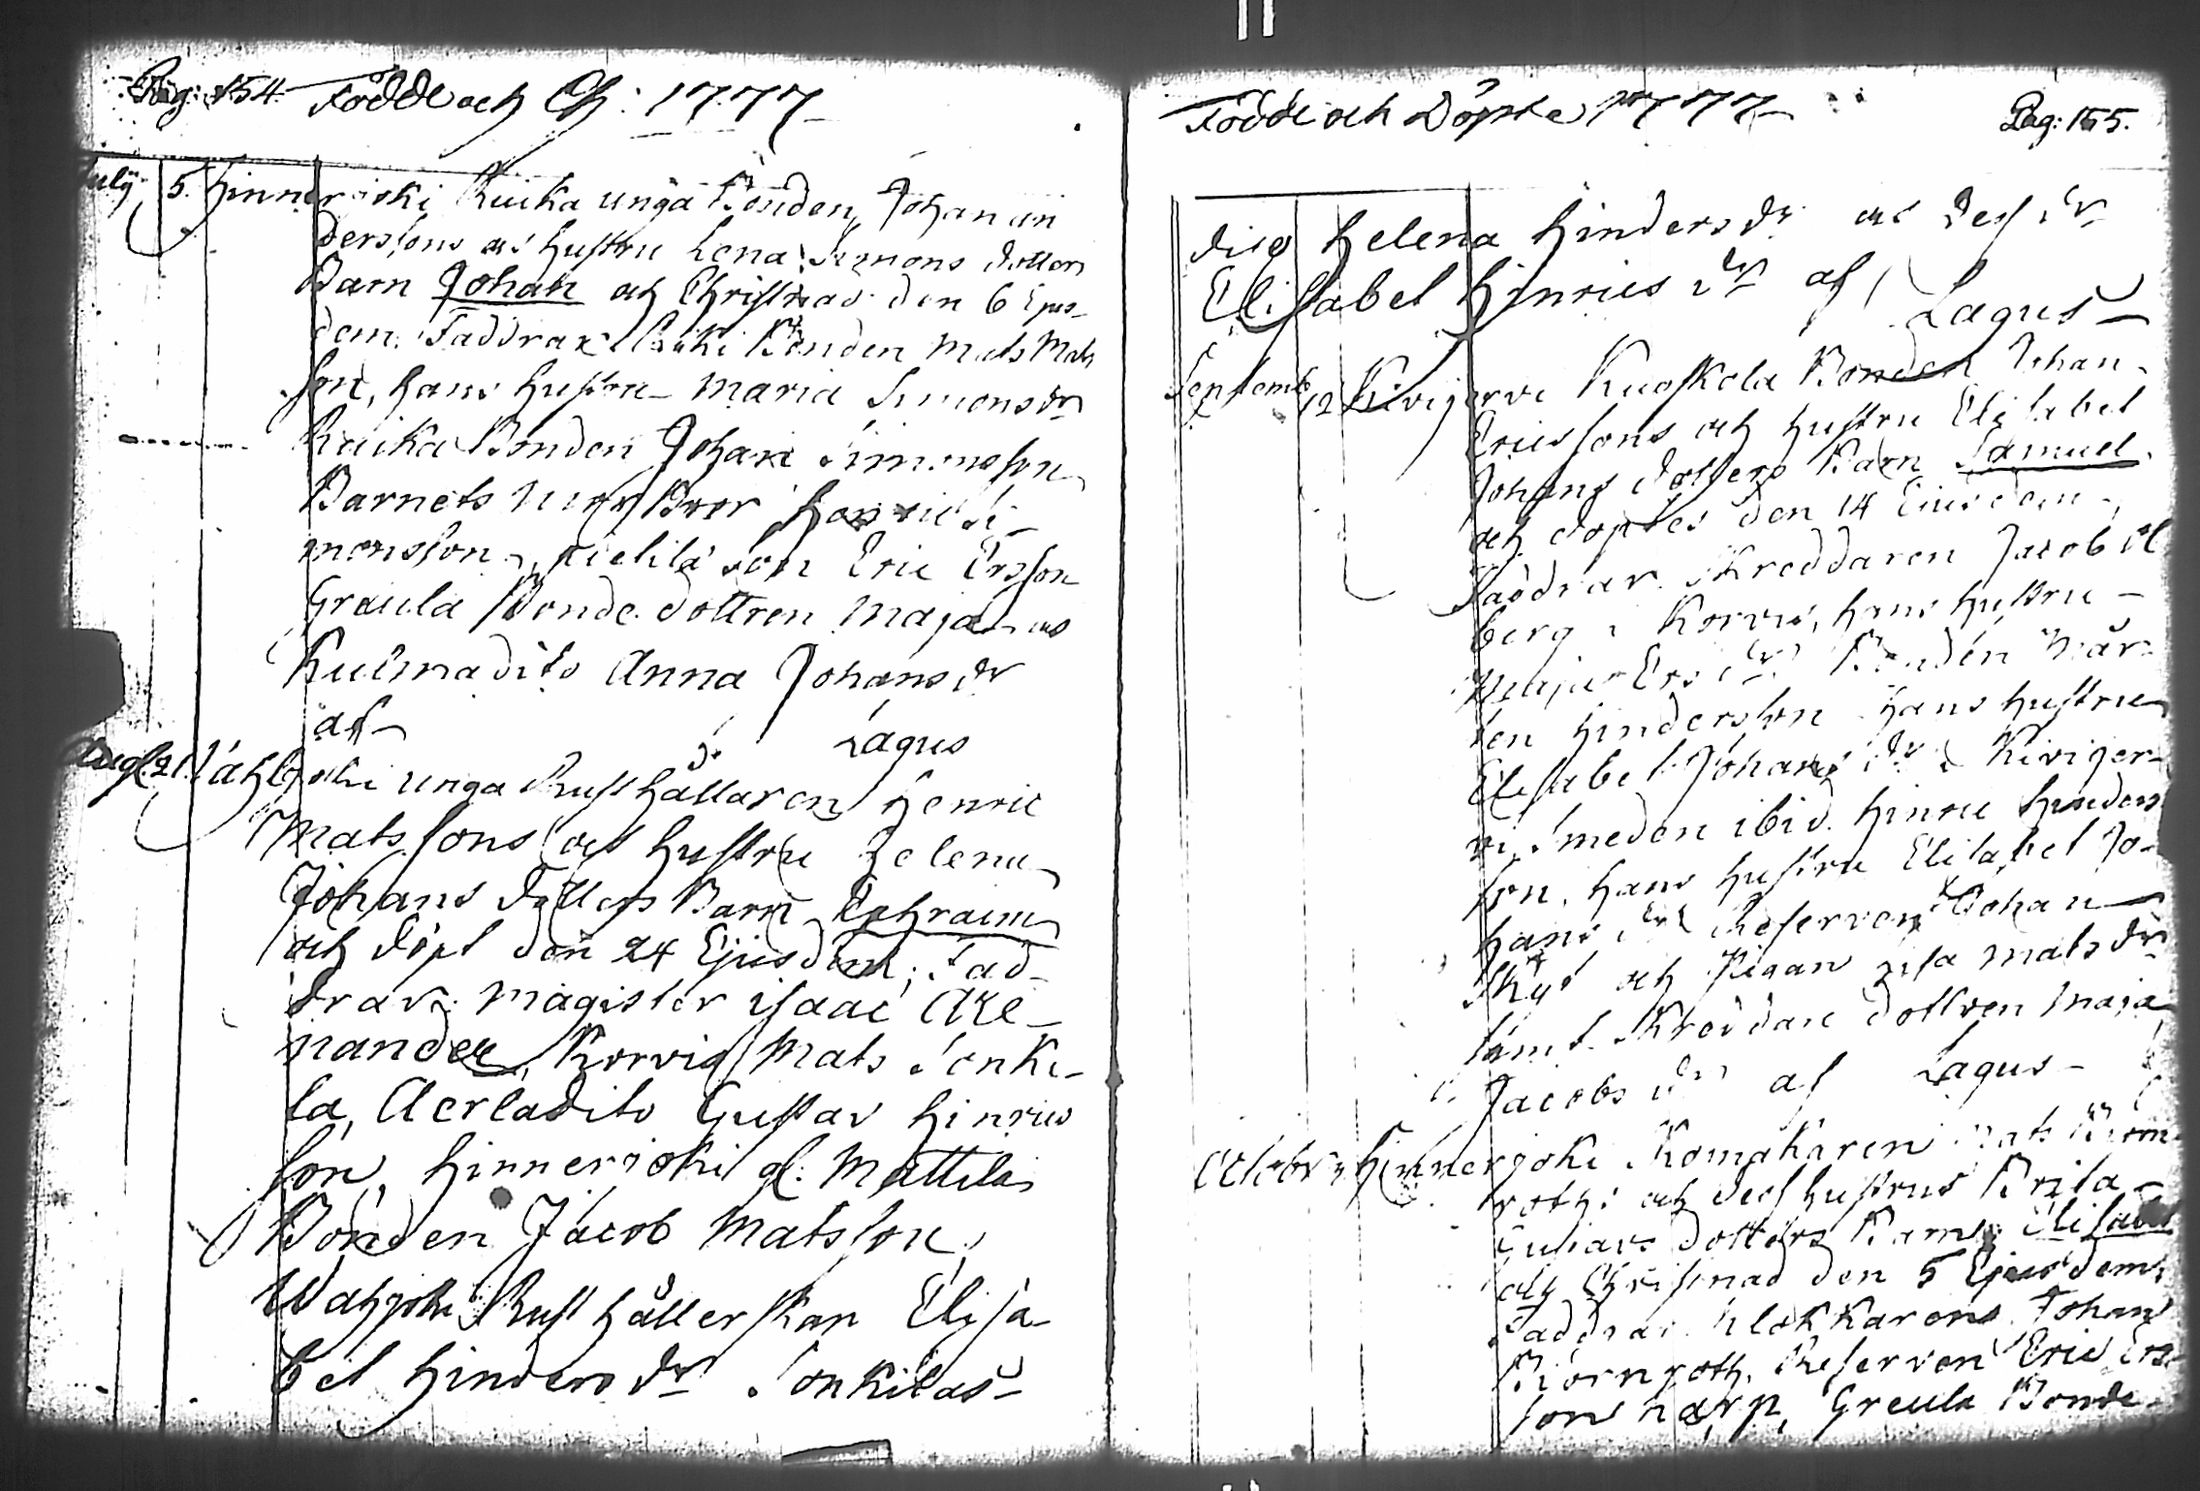 Pag: 154. Födde och Ch: 1777
July 5. Hinnerjoki Ruika unga Bonden Johan An
derssons och hustru Lena Simons dotters
Barn Johan och Christnad den 6 Ejus-
dem. Faddrar Bonden Mats Mats
son, hans hustru Maria Simonsdr
Ruika Bonden Johan Simonsson
Barnets Mor Bror Henric Si-
monsson, son Eric Ersson
Greula Bonde dottren Maja och
dito Anna Johansdr
af Lagus
Aug. 21. unga Rusthållaren Henric
Matssons och hustru Helena
Johans dotters Barn Ephraim
och döpt den 24 Ejusdem; Fad-
drar: Magister Isaac Ake-
nander, Korvis Mats Sonki-
la, dito Gustav Hinrics
son, Hinnerjoki gl. Mattila
Bonden Jacob Matsson,
Rusthållerskan Elisa-
bet Hindersdr Sonkilas
Födde och Döpte 1777 Pag: 155.
Helena Hindersdr
Elisabet Hinricsdr af Lagus
Septemb 12 Kivijervi Kuoskola Bonden Johan
Ericssons och hustru Elisabet
Johans dotters Barn Samuel
och döptes den 14 Eiusdem,
Faddrar Skreddaren Jacob
berg i Korvis, hans hustru
Maja Ersdr Bonden Mår-
ten Hindersson hans hustru
Elisabet Johansdr i Kivijer-
vi, Smeden ibid. Hinric Hinders
son, hans hustru Elisabet Jo-
hansdr Reserven Johan
Skyt och Pigan Lisa Matsdr
samt Skreddare dottren Maja
Jacobsdr af Lagus
October Hinnerjoki Mats Biörn
roth: och dess hustrus Brita
Gustavs dotters Barn Elisabet
och Christnad den 5 Ejusdem,
Faddrar Klokkaren Johan
Biörnroth, Reserven Eric Ers
son Greula Bonde